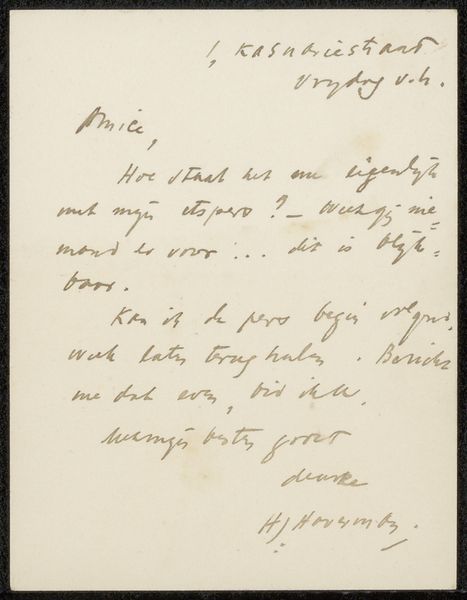 1, Kasuariestraat
vrydag v.h.
Amice,
Hoe staat het nu eigenlyk
met myn etspers? – Weet gy nie=
mand er voor ... dit is blyk=
baar.
Kan ik de pers begin volgende
week laten terughalen. Bericht
me dat even, bid ik U.
Met myn besten groet
HJ Haverman.